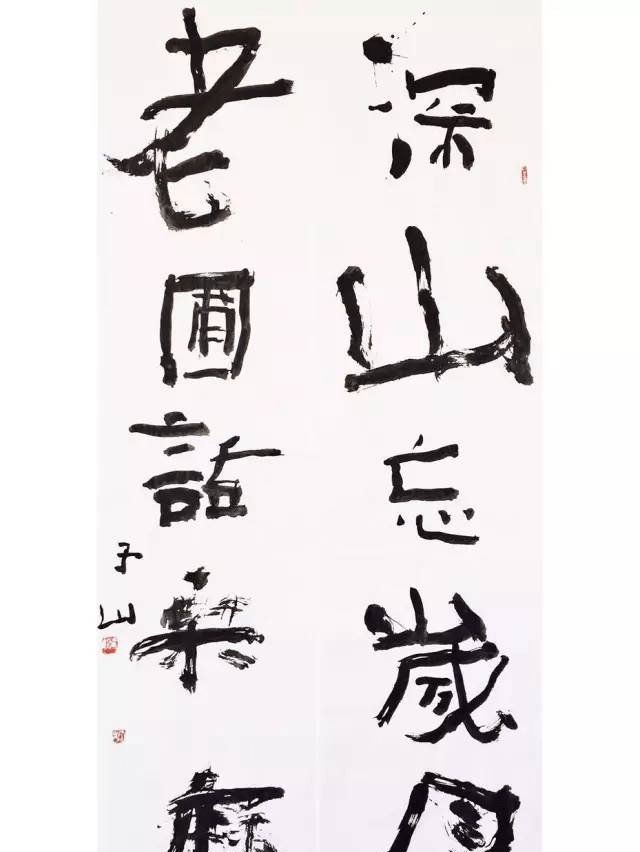 深山忘歲月
老圃話桑麻
子山